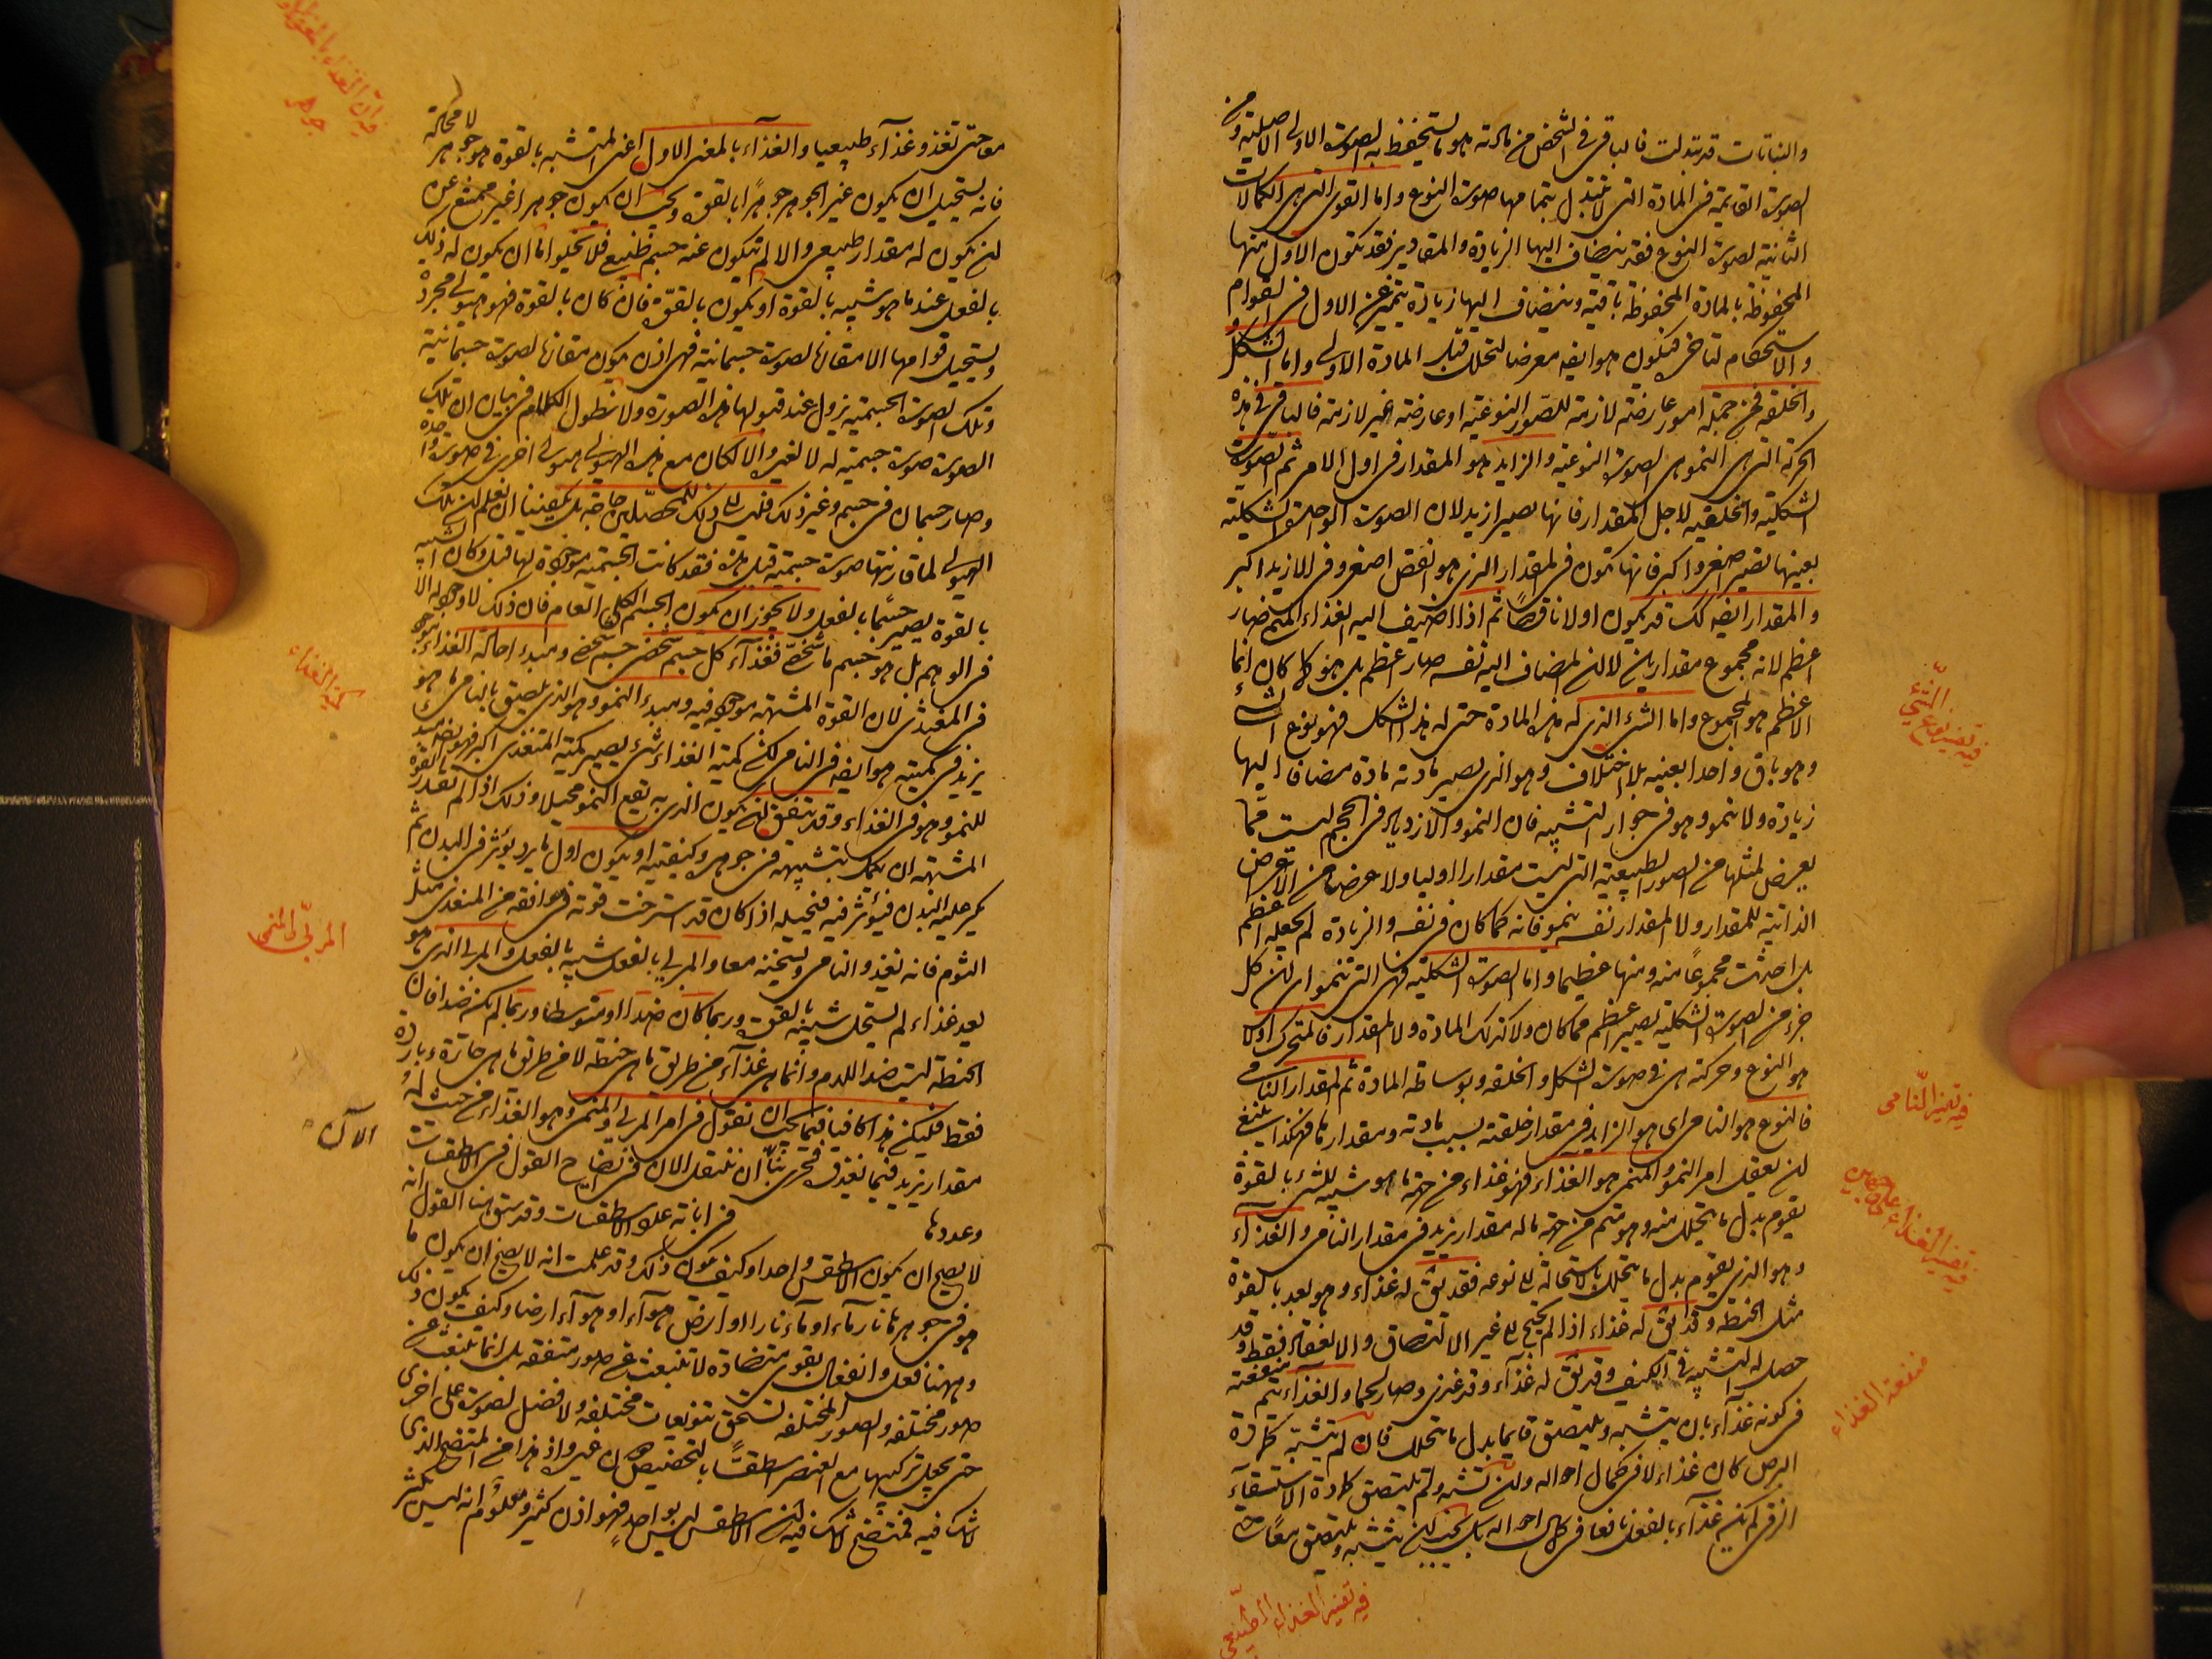 والنباتات قد تبدلت فالباقى فى الشخص من مادته هو ما يستحفظ به الصورة الاولى الاصلية ومن
الصورة القائمة فى المادة التى لا تتبدل بتمامها صورة النوع واما القوى التى هى الكمالات
الثانية لصورة النوع فقد ينضاف اليها الزيادة والمقادير فقد تكون الاول منها
المحفوظة بالمادة المحفوظة باقية وينضاف اليها زيادة يتميز عن الاول فى القوام
والاستحكام لتاخر فيكون هو ايضه معرضا لتحلل قبل المادة الاولى واما الشكل
والخلقه فمن جملة امور عارضة لازمة للصور النوعية او عارضة غير لازمة فالباقى فى هذه
الحركة التى هى النمو هى الصورة النوعية والزايد هو المقدار فى اول الامر ثم الصورة
الشكلية والخلقية لاجل المقدار فانها تصير ازيد لان الصورة الواحدة الشكلية
بعينها تصير اصغر واكبر فانها تكون فى المقدار الذى هو انقص اصغر وفى الازيد اكبر
والمقدار ايضه كك قد يكون اولا ناقصا ثم اذا اضيف اليه الغذاء المنمى صار
اعظم لانه مجموع مقدارين لا لان المضاف اليه نفسه صار اعظم بل هو كما كان انما
الاعظم هو المجموع واما الشئ الذى له هذه المادة حتى له هذا الشكل فهو نوع الشئ
وهو باق واحدا بعينه بلا اختلاف وهو الذى يصير مادته مادة مضافا اليها
زيادة ولا نمو وهو فى جوار التشبيه فان النمو والازدياد فى الحجم ليست مما
يعرض لمثلها من الصور الطبيعية التى ليست مقدارا اوليا ولا عرضا من الاعراض
الذاتية للمقدار ولا المقدار نفسه ينمو فانه كما كان فى نفسه والزيادة لم تجعله اعظم
بل احدثت مجموعا منه ومنها عظيما واما الصورة الشكلية فهى التى تنمو اى ان كل
جزء من الصورة الشكلية يصير اعظم مما كان ولا كذلك المادة ولا المقدار فالمتحرك اولا
هو النوع وحركته هى فى صورة الشكل والخلقه وبوساطه المادة ثم المقدار النامى
فالنوع هو النامى اى هو الزايد فى مقدار خلقته بسبب مادته ومقدارها فهكذا ينبغى
ان يعقل امر النمو والمنمى هو الغذاء فهو غذاء من جهة ما هو شبيه للشئ بالقوة
يقوم بدل ما يتحلل منه وهو منم من جهة ما له مقدار يزيد فى مقدار النامى والغذاء
وهو الذى يقوم بدل ما يتحلل بالاستحالة الى نوعه فقد يق له غذاء وهو بعد بالقوة
مثل الحنطة وقد يق له غذاء اذا لم يحتج الى غير الالتصاق والانعقاد فقط وقد
حصل له التشبيه فى الكيف وقد يق له غذاء وقد غذى وصار لحما والغذاء يتم منفعته
فى كونه غذاء بان يتشبه ويلتصق قايما بدل ما يتحلل فان لم يتشبه كمادة
البرص كان غذاء لا فى كمال احواله وان تشبه ولم يلتصق كمادة الاستسقاء
الزقى لم يكن غذاء بالفعل نافعا فى كمال احواله بل يجب ان يتشبه ويلتصق معا
فيه تفسير نوع الشئ
فيه تفسير النامى
فيه تفسير الغذاء
منفعة الغذاء
فيه تفسير الغذاء الطبيعى
معا حتى تغذو غذاء طبيعيا والغذاء بالمعنى الاول اعنى المتشبه بالقوة هو جوهر لا محالة
فانه يستحيل ان يكون غير الجوهر جوهرا بالقوة ويجب ان يكون جوهرا غير ممتنع عن
ان يكون له مقدار طبيعى والا لم يتكون عنه جسم طبيعى فلا يخلو اما ان يكون له ذلك
بالفعل عند ما هو شبيه بالقوة او يكون بالقوة فان كان بالقوة فهو هيولى مجردة
ويستحيل قوامها الا مقارنا لصورة جسمانية فهى اذن يكون مقارنا لصورة جسمانية
وتلك الصورة الجسمية يزول عند قبولها هذه الصورة ولا نطول الكلام فى بيان ان تلك
الصورة صورة جسمية له لا لغيره والا لكان مع هذه الهيولى هيولى اخرى فى صورة واحدة
وصار جسمان فى جسم وغير ذلك فليس الى ذلك للمحصلين حاجة بل يكفينا ان نعلم ان تلك
الهيولى لما قارنتها صورة جسمية قبل هذه فقد كانت الجسمية موجودة لها قبل وكان الشبيه
بالقوة يصير جسما بالفعل ولا يجوز ان يكون الجسم الكلى العام فان ذلك لا وجود له الا
فى الوهم بل هو جسم ما شخصى فغذاء كل جسم شخصى جسم شخصى ومبدء احالة الغذاء موجود
فى المغتذى لان القوة المشبهه موجودة فيه ومبدء النمو وهو الذى يلصق بالنامى ما هو
يزيد فى كميته هو ايضه فى النامى لكن كمية الغذاء شئ يصير كمية المتغذى اكبر فهو ايضه مبدء
للنمو وهو فى الغذاء وقد يتفق ان يكون الذى به يقع النمو محيلا وذلك اذا لم تقدر القوة
المشبهه ان يكمل تشبيهه فى جوهره وكيفيته او يكون اول ما يرد يؤثر فى البدن ثم
يكر عليه البدن فيؤثر فيه فيحيله اذا كان قد استرخت قوته فى موافقه من المتغذى مثل
الثوم فانه يغذو النامى ويسخنه معا والمربى بالفعل شبيه بالفعل والمربى الذى هو
بعد غذاء لم يستحل شبيه بالقوة وربما كان ضدا او متوسطا وربما لم يكن ضدا فان
الحنطة ليست ضد اللدم وانما هى غذاء من طريق ما هى حنطة لا من طريق ما هى حارة وباردة
فقط فليكن هذا كافيا فيما يجب ان نقول فى امر المربى والمنمى وهو الغذاء من حيث له
مقدار يزيد فيما يغذو فحرى بنا ان ننتقل الان فى ايضاح القول فى الاسطقسات
وعددها فى ابانة عدد الاسطقسات وقد سبق منا القول انه
لا يصح ان يكون الاسطقس واحدا وكيف يكون ذلك وقد علمت انه لا يصح ان يكون ما
هو فى جوهره نار ماء او ماء نارا او ارض هواء او هواء ارضا وكيف يكون ذلك
وههنا فعل وانفعال بقوى متضادة لا تنبعث عن صور متفقه بل انما تنبعث عن
صور مختلفه والصور المختلفه تستحق تنويعات مختلفه ولا فضل لصورة على اخرى
حتى يجعل تركيبها مع العنصر اسطقسا بالتخصيص دون غيره واذ هذا من المتضح الذى
لا شك فيه فمتضح لا شك فيه ان الاسطقس ليس بواحد فهو اذن كثير ومعلوم انه ليس بكثير
كمية الغذاء
المربى والمنمى
الآن